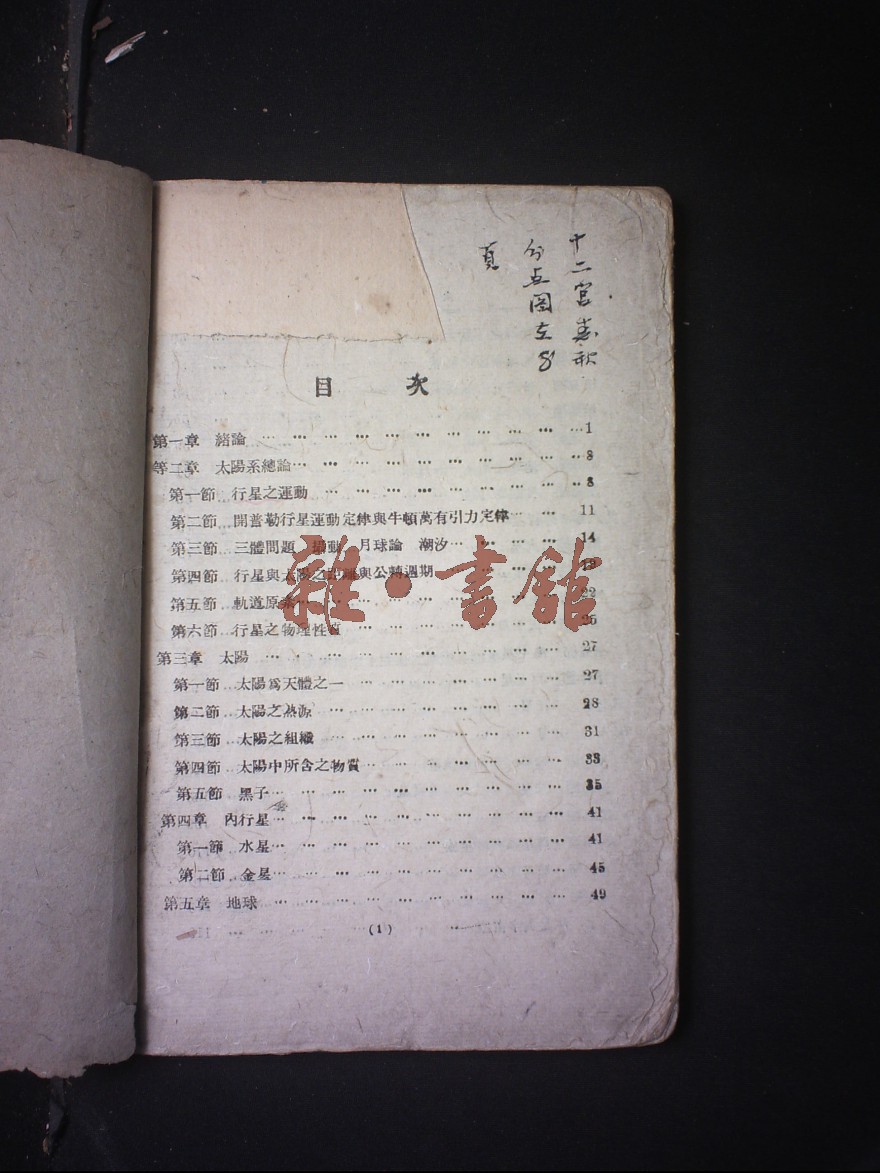 十二宮春秋
分点图在8
頁
目 次
第一章 緒論 1
等二章 太陽系總論 8
第一節 行星之運動 8
第二節 開普勒行星運動定律與牛頓萬有引力定律 11
第三節 三體問題 攝動 月球論 潮汐 14
第四節 行星與太陽之距離與公轉週期 19
第五節 軌道原素 22
第六節 行星之物理性質 25
第三章 太陽 27
第一節 太陽爲天體之一 27
第二節 太陽之熱源 28
第三節 太陽之組織 31
第四節 太陽中所含之物質 33
第五節 黑子 35
第四章 內行星 41
第一節 水星 41
第二節 金星 45
第五章 地球 49
(1)
雜·書館